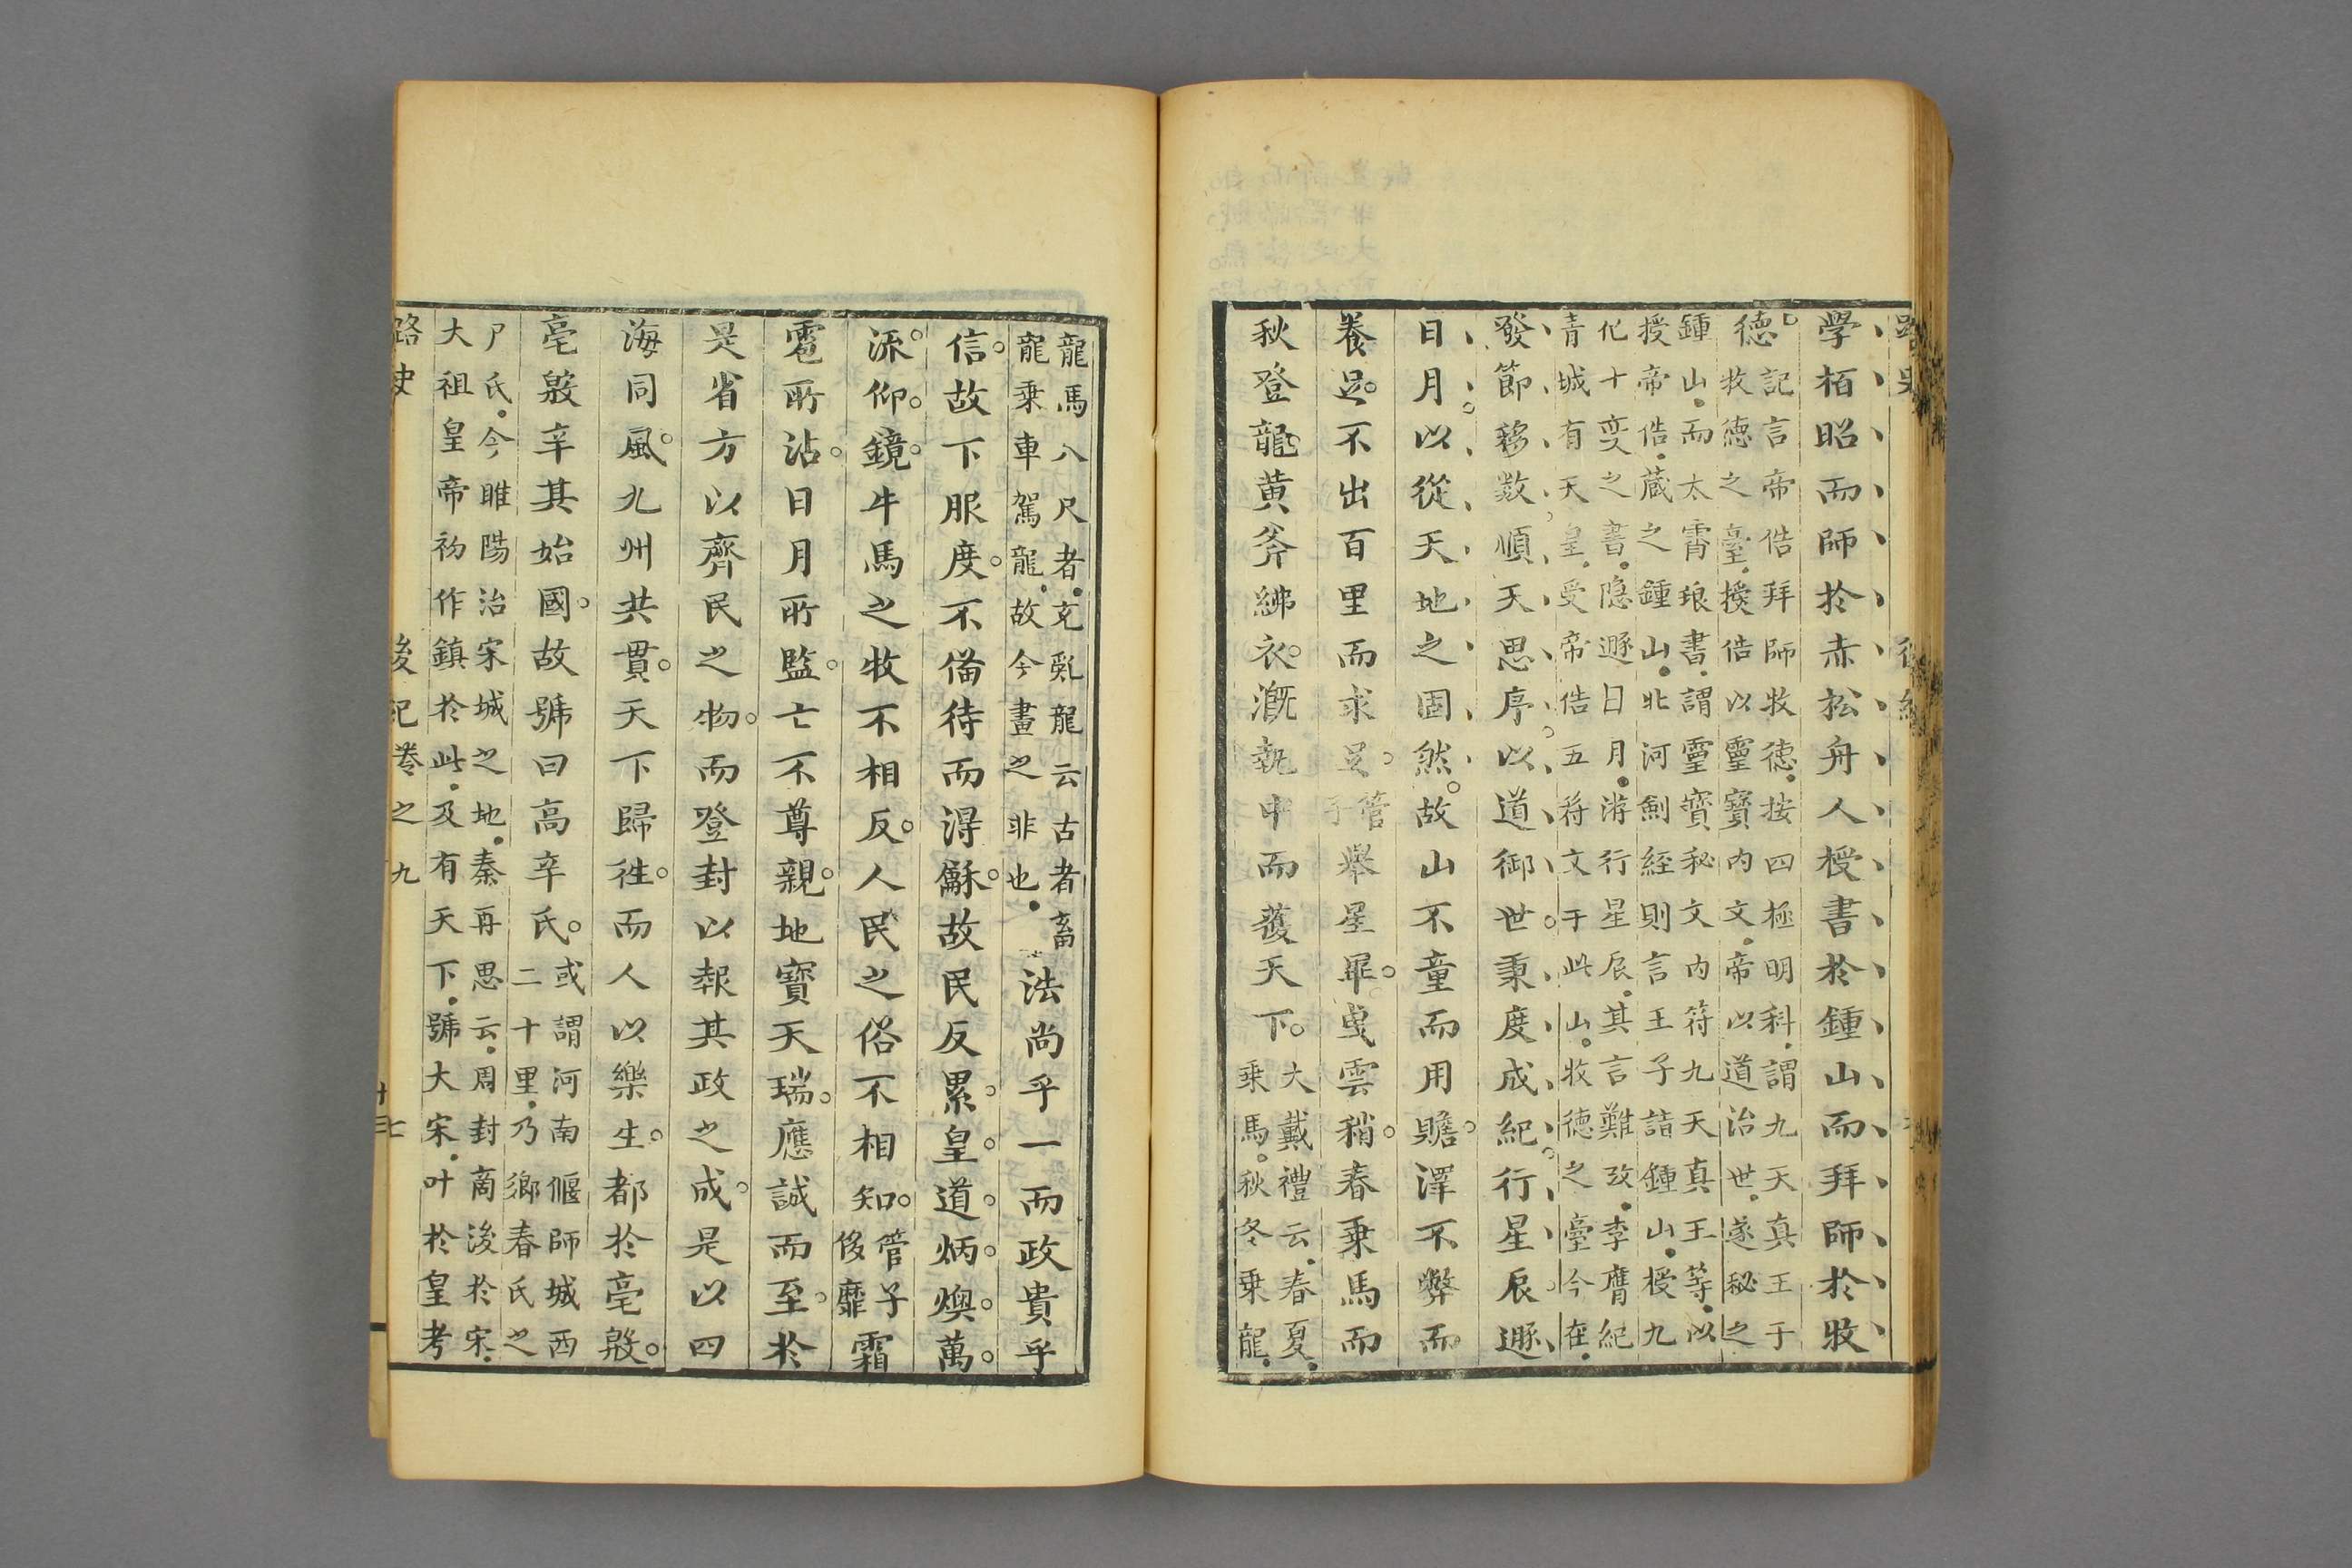 學栢昭而師於赤松舟人授書於鍾山而拜師於牧
德
記言帝俈拜師牧德按四極明科謂九天真王于
牧德之臺授俈以靈寳内文帝以道治世遂秘之
鍾山而太霄琅書謂靈寳秘文内符九天天真王等以
授帝俈蔵之鍾山北河劍經則言王子詣鍾山授九
化十変之書隐遯日月游行星辰其言難攷李膺紀
青城有天皇受帝俈五符文于此山牧德之臺今在
發節移数順天思序以道御世秉度成紀行星辰遯
日月以從天地之固然故山不童而用贍澤不弊而
養足不出百里而求足
管
子
舉星畢曵雲稍春乗馬而
秋登龍黄斧紼衣漑執中而蒦天下
大戴禮云春夏
乗馬秋冬乗龍
龍馬八尺者玄虬龍云古者畜
龍乗車駕龍故今畫之非也
法尚乎一而政貴乎
信故下服度不俻待而得龢故民反累皇道炳煥萬
派仰鏡牛馬之牧不相反人民之俗不相知
管子
侈靡
霜
雹所沾日月所監亡不尊親地寳天瑞應誠而至於
是省方以齊民之物而登封以報其政之成是以四
海同風九州共貫天下歸徃而人以樂生都於亳殷
亳殷辛其始國故號曰高辛氏
或謂河南偃師城西
二十里乃鄉春氏之
尸氏今睢陽治宋城之地秦再思云周封商後於宋
大祖皇帝初作鎮於此及有天下號大宋叶於皇考
路史　後紀卷之九　十七